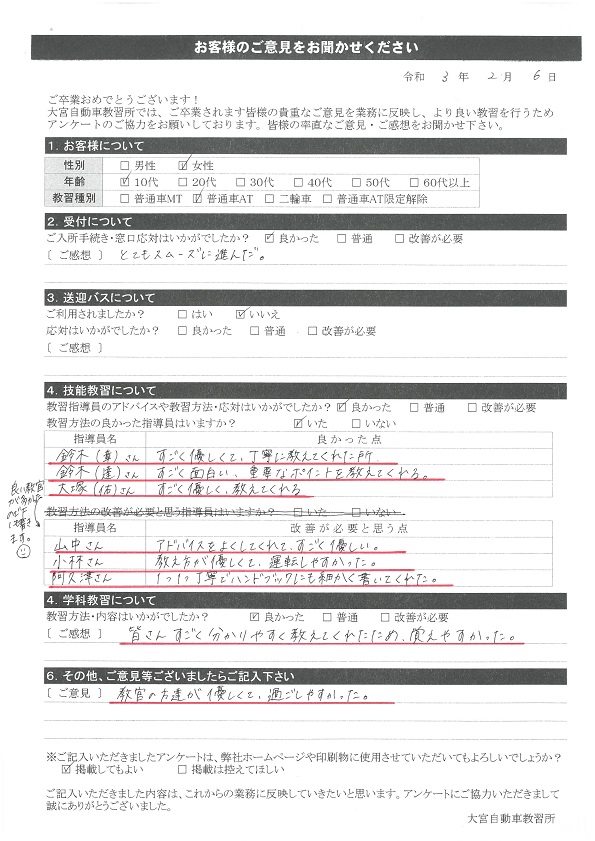 お客様のご意見をお聞かせください
令和 3 年 2 月 6 日
ご卒業おめでとうございます！
大宮自動車教習所では、ご卒業されます皆様の貴重なご意見を業務に反映し、より良い教習を行うため
アンケートのご協力をお願いしております。皆様の率直なご意見・ご感想をお聞かせ下さい。
1. お客様について
性別 □ 男性 ☑ 女性
年齢 ☑ 10代 □ 20代 □ 30代 □ 40代 □ 50代 □ 60代以上
教習種別 □ 普通車MT ☑ 普通車AT □ 二輪車 □ 普通車AT限定解除
2. 受付について
ご入所手続き・窓口応対はいかがでしたか？ ☑ 良かった □ 普通 □ 改善が必要
〔 ご感想 〕 とてもスムーズに進んだ。
3. 送迎バスについて
ご利用されましたか？ □ はい ☑ いいえ
応対はいかがでしたか？ □ 良かった □ 普通 □ 改善が必要
〔 ご感想 〕
4. 技能教習について
教習指導員のアドバイスや教習方法・応対はいかがでしたか？ ☑ 良かった □ 普通 □ 改善が必要
教習方法の良かった指導員はいますか？ ☑ いた □ いない
指導員名 良かった点
鈴木(真)さん すごく優しくて、丁寧に教えてくれた所
鈴木(達)さん すごく面白い、重要なポイントを教えてくれる。
大塚(佑)さん すごく優しく、教えてくれる
良い教官
が多かった
ので下
に書き
ます。
教習方法の改善が必要と思う指導員はいますか？ □ いた □ いない
指導員名 改善が必要と思う点
山中さん アドバイスをよくしてくれて、すごく優しい。
小林さん 教え方が優しくて、運転しやすかった。
阿久津さん 1つ1つ丁寧でハンドブックにも細かく書いてくれた。
4. 学科教習について
教習方法・内容はいかがでしたか？ ☑ 良かった □ 普通 □ 改善が必要
〔 ご感想 〕 皆さんすごく分かりやすく教えてくれたため、覚えやすかった。
6. その他、ご意見等ございましたらご記入下さい
〔 ご意見 〕 教官の方達が優しくて、過ごしやすかった。
※ご記入いただきましたアンケートは、弊社ホームページや印刷物に使用させていただいてもよろしいでしょうか？
☑ 掲載してもよい □ 掲載は控えてほしい
ご記入いただきました内容は、これからの業務に反映していきたいと思います。アンケートにご協力いただきまして
誠にありがとうございました。
大宮自動車教習所